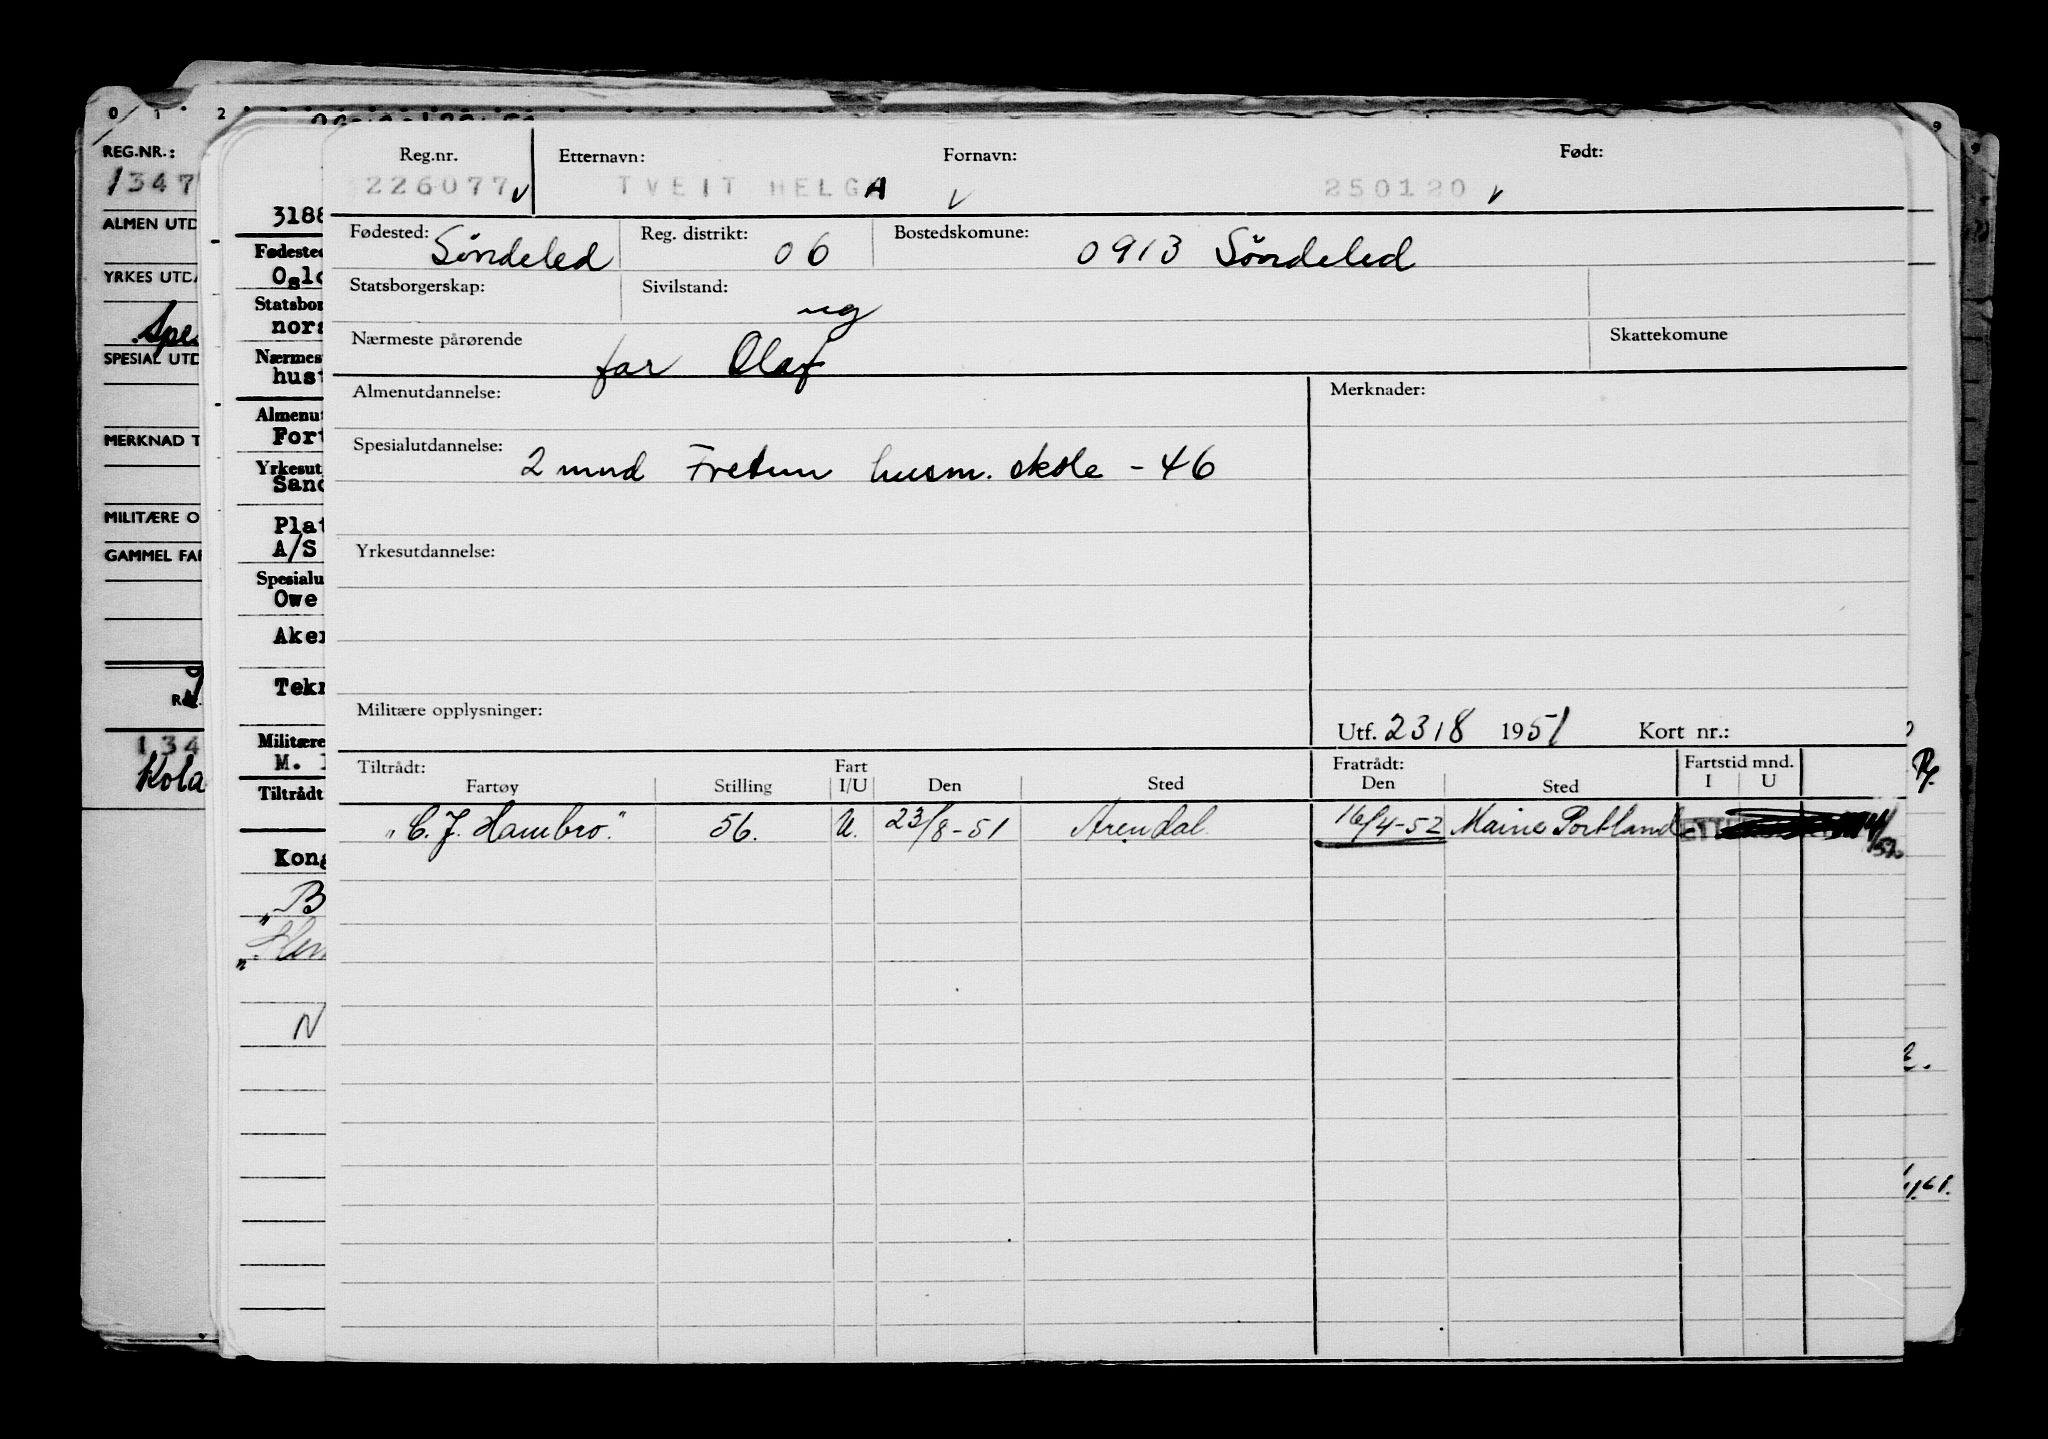 0 1 2 9
REG.NR.:
1347
ALMEN UTD
YRKES UTDA
Spes
SPESIAL UTD
MERKNAD T
MILITÆRE O
GAMMEL FAR
134
Kola
3188
Fødested
Oslo
Statsbor
nors
Nærmes
hust
Almenut
Fort
Yrkesut
Sand
Plat
A/S
Spesialu
Owe
Aker
Tekn
Militære
M.
Tiltrådt
Kong
„B
N
Reg.nr. Etternavn: Fornavn: Født:
226077 v TVEIT HELGA v 250120 v
Fødested: Söndeled Reg. distrikt: 06 Bostedskomune: 0913 Söndeled
Statsborgerskap: Sivilstand: ug
Nærmeste pårørende far Olaf Skattekomune
Almenutdannelse: Merknader:
Spesialutdannelse: 2 mnd Fretun husm. skole - 46
Yrkesutdannelse:
Militære opplysninger: Utf. 23/8 1951 Kort nr.:
Tiltrådt: Fart Fratrådt: Fartstid mnd.
Fartøy Stilling I/U Den Sted Den Sted I U
„C. J. Hambro." 56. U. 23/8-51 Arendal. 16/4-52 Maine Portland